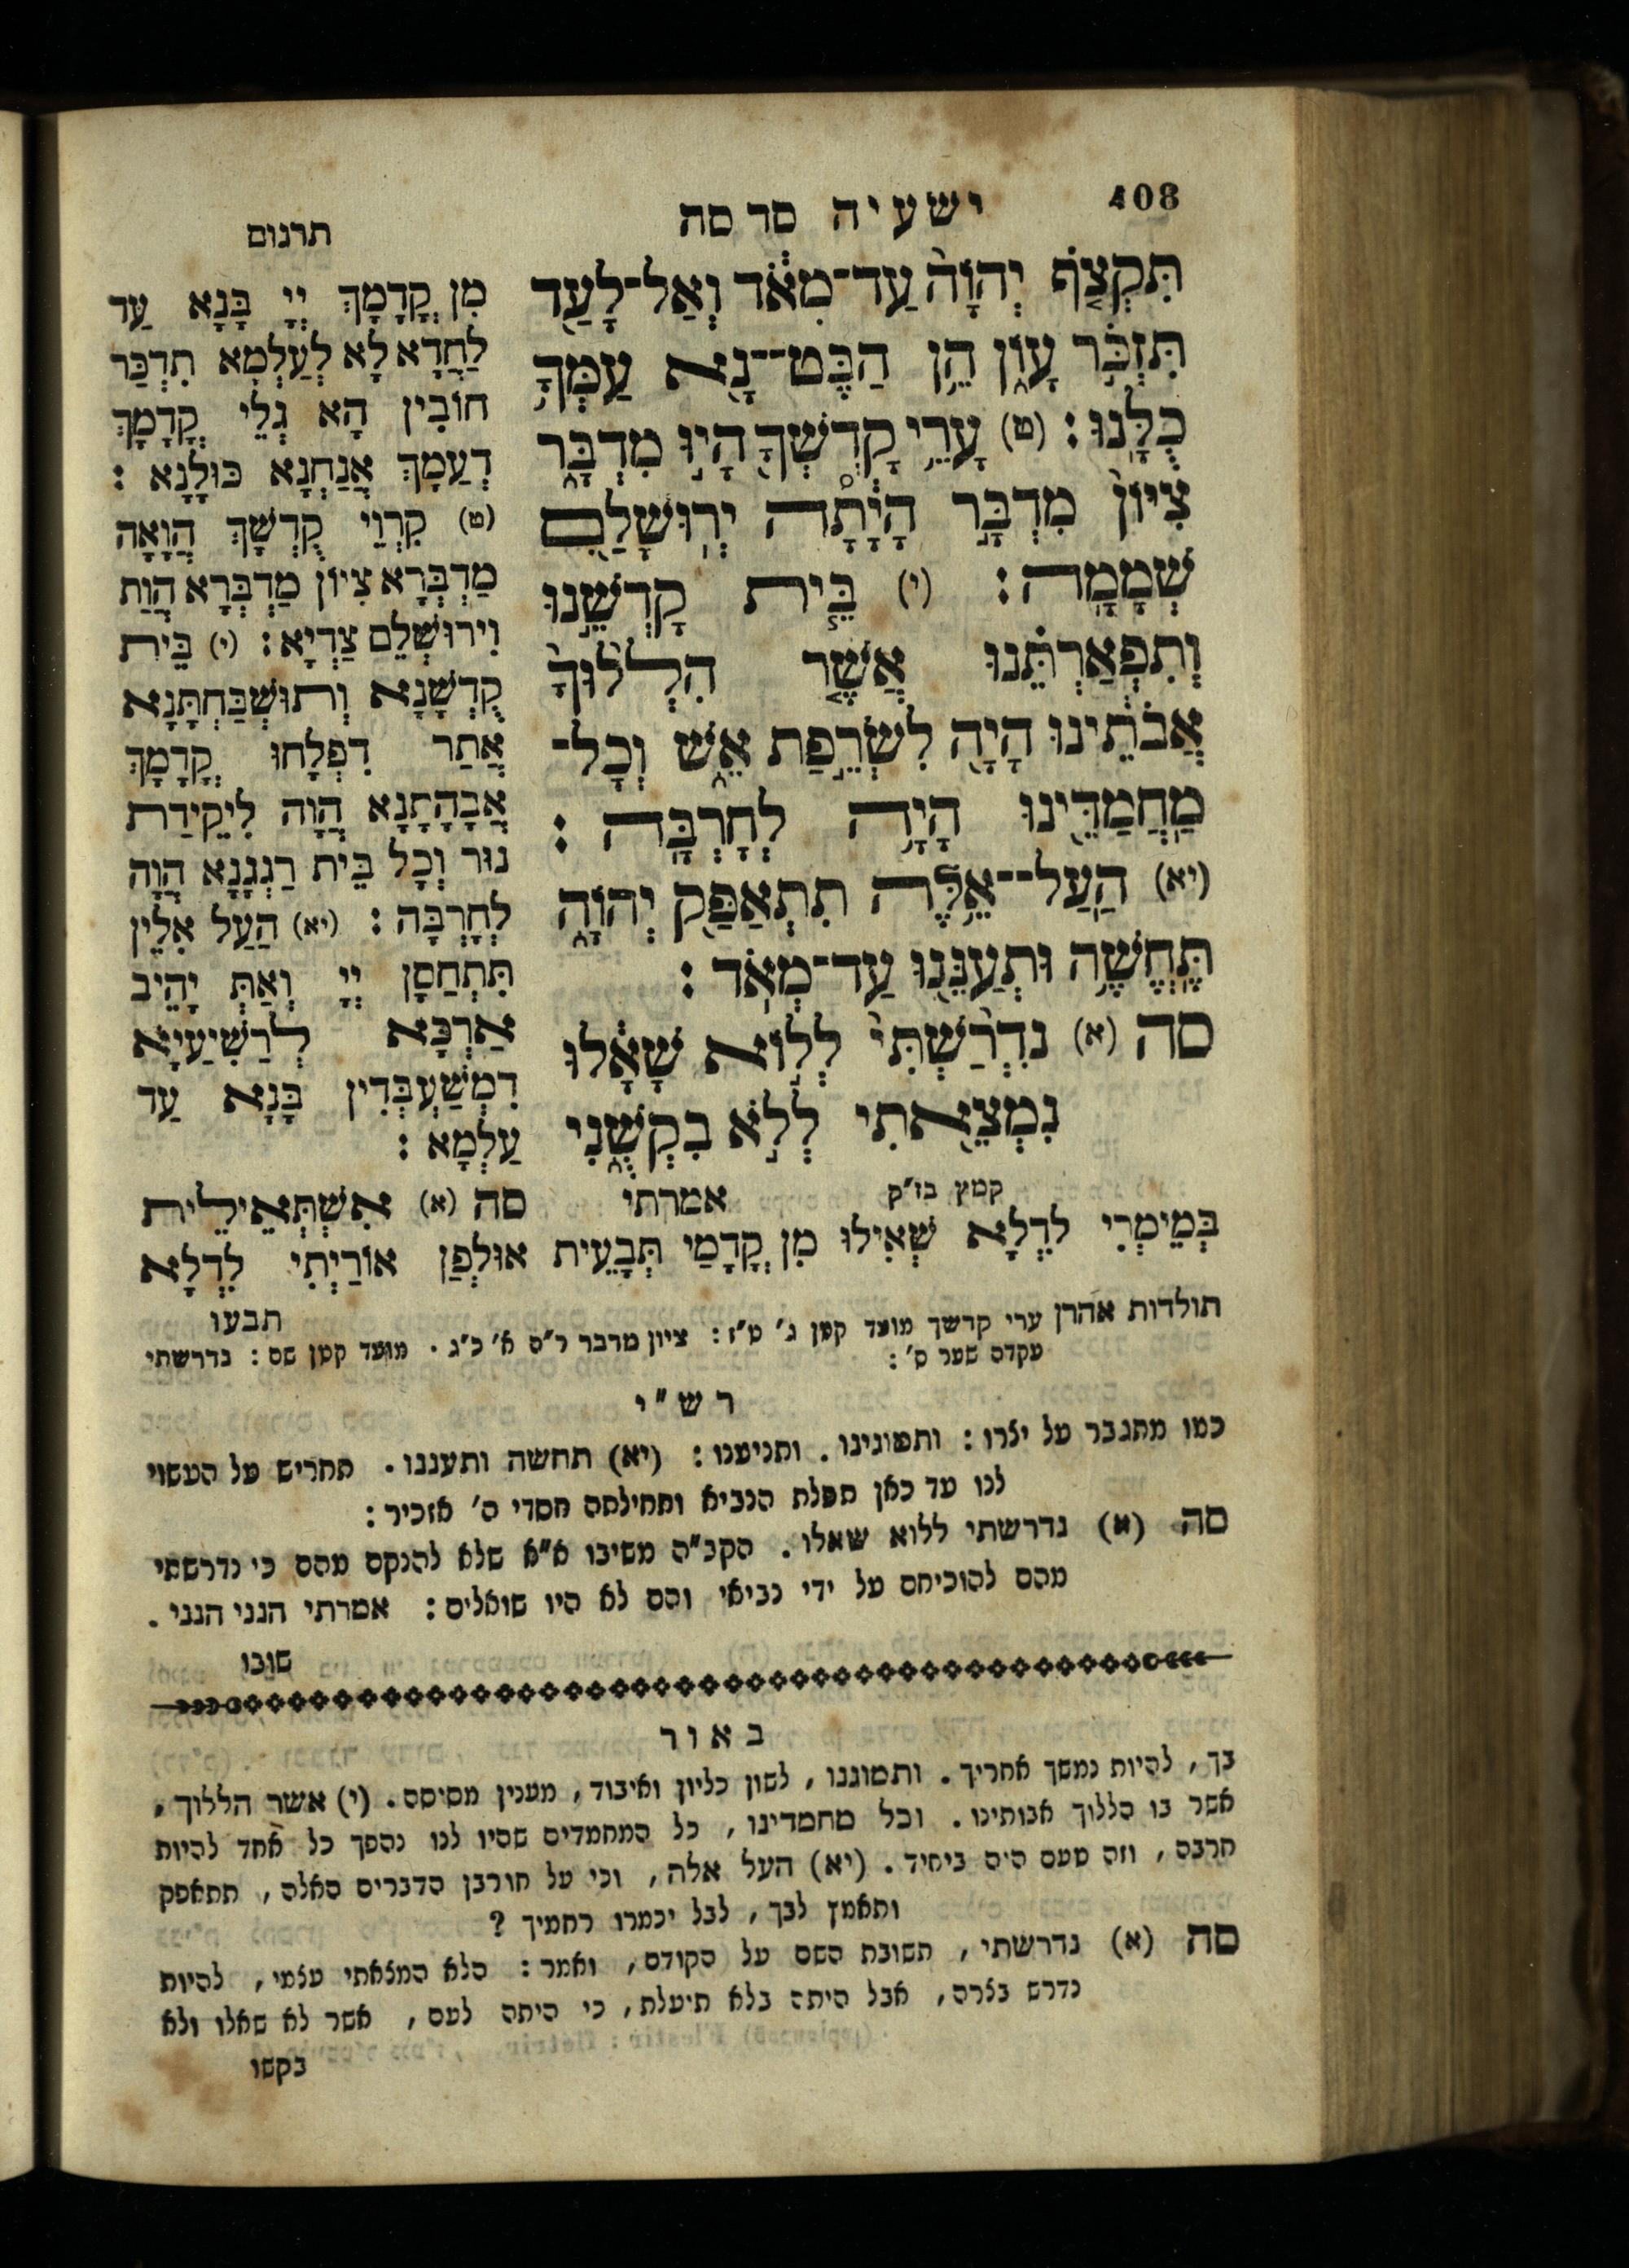 408
ישעיה סד סה
תִּקְצֹ֤ף יְהוָה֙ עַד־מְאֹ֔ד וְאַל־לָעַ֖ד
תִּזְכֹּ֣ר עָוֹ֑ן הֵ֥ן הַבֶּט־־נָ֖א עַמְּךָ֥
כֻלָּֽנוּ׃ (ט) עָרֵ֥י קָדְשְׁךָ֖ הָי֣וּ מִדְבָּ֑ר
צִיּוֹן֙ מִדְבָּ֣ר הָיָ֔תָה יְרֽוּשָׁלַ֖םִ
שְׁמָמָֽה׃ (י) בֵּ֧ית קָדְשֵׁ֣נוּ
וְתִפְאַרְתֵּ֗נוּ אֲשֶׁ֤ר הִלְלוּךָ֙
אֲבֹתֵ֔ינוּ הָיָ֖ה לִשְׂרֵ֣פַת אֵ֑שׁ וְכָל־
מַחֲמַדֵּ֖ינוּ הָיָ֥ה לְחָרְבָּֽה׃
(יא) הַעַל־־אֵ֥לֶּה תִתְאַפַּ֖ק יְהוָ֑ה
תֶּחֱשֶׁ֥ה וּתְעַנֵּ֖נוּ עַד־מְאֹֽד׃
סה (א) נִדְרַ֙שְׁתִּי֙ לְל֣וֹא שָׁאָ֔לוּ
נִמְצֵ֖אתִי לְלֹ֣א בִקְשֻׁ֑נִי
קמץ בז״ק
אמרתי
תרגום
מִן קֳדָמָךְ יְיָ בָּנָא עַד
לַחֲדָא לָא לְעַלְמָא תִדְכַּר
חוֹבִין הָא גְלֵי קֳדָמָךְ
דְעַמָךְ אֲנַחְנָא כּוּלָנָא׃
(ט) קִרְוֵי קֻדְשָׁךְ הֲוָאָה
מַדְבְּרָא צִיוֹן מַדְבְּרָא הֲוַת
וִירוּשְׁלֵם צַדְיָא׃ (י) בֵּית
קֻדְשָׁנָא וְתוּשְׁבַּחְתָּנָא
אֲתַר דִפְלָחוּ קֳדָמָךְ
אֲבָהָתָנָא הֲוָה לִיקֵידַת
נוּר וְכָל בֵּית רַגְגָנָא הֲוָה
לְחָרְבָּה׃ (יא) הַעַל אִלֵין
תִּתְחַסָן יְיָ וְאַתְּ יָהֵיב
אַרְכָּא לְרַשִׁיעַיָא
דִמְשַׁעְבְּדִין בָּנָא עַד
עַלְמָא׃
סה (א) אִשְׁתְּאֵילֵית
בְּמֵימְרִי לִדְלָא שְׁאִילוּ מִן קֳדָמַי תְּבָעֵית אוּלְפַן אוֹרַיְתִי לִדְלָא
תבעו
תולדות אהרן ערי קדשך מועד קטן ג׳ ט״ז׃ ציון מדבר ר״ס א׳ כ״ג. מועד קטן שם׃ נדרשתי
עקדה שער ס׳׃
רש״י
כמו מתגבר על יצרו׃ ותמוגינו. ותניענו׃ (יא) תחשה ותעננו. תחריש על העשוי
לנו עד כאן תפלת הנביא ותחילתה חסדי ה׳ אזכיר׃
סה (א) נדרשתי ללוא שאלו. הקב״ה משיבו א״א שלא להנקם מהם כי נדרשתי
מהם להוכיחם על ידי נביאי והם לא היו שואלים׃ אמרתי הנני הנני.
שובו
באור
בך, להיות נמשך אחריך. ותמוגנו, לשון כליון ואיבוד, מענין מסיסה. (י) אשר הללוך,
אשר בו הללוך אבותינו. וכל מחמדינו, כל המחמדים שהיו לנו נהפך כל אחד להיות
חרבה, וזה טעם היה ביחיד. (יא) העל אלה, וכי על חורבן הדברים האלה, תתאפק
ותאמץ לבך, לבל יכמרו רחמיך?
סה (א) נדרשתי, תשובת השם על הקודם, ואמר׃ הלא המצאתי עצמי, להיות
נדרש בצרה, אבל היתה בלא תיעלת, כי היתה לעם, אשר לא שאלו ולא
בקשו